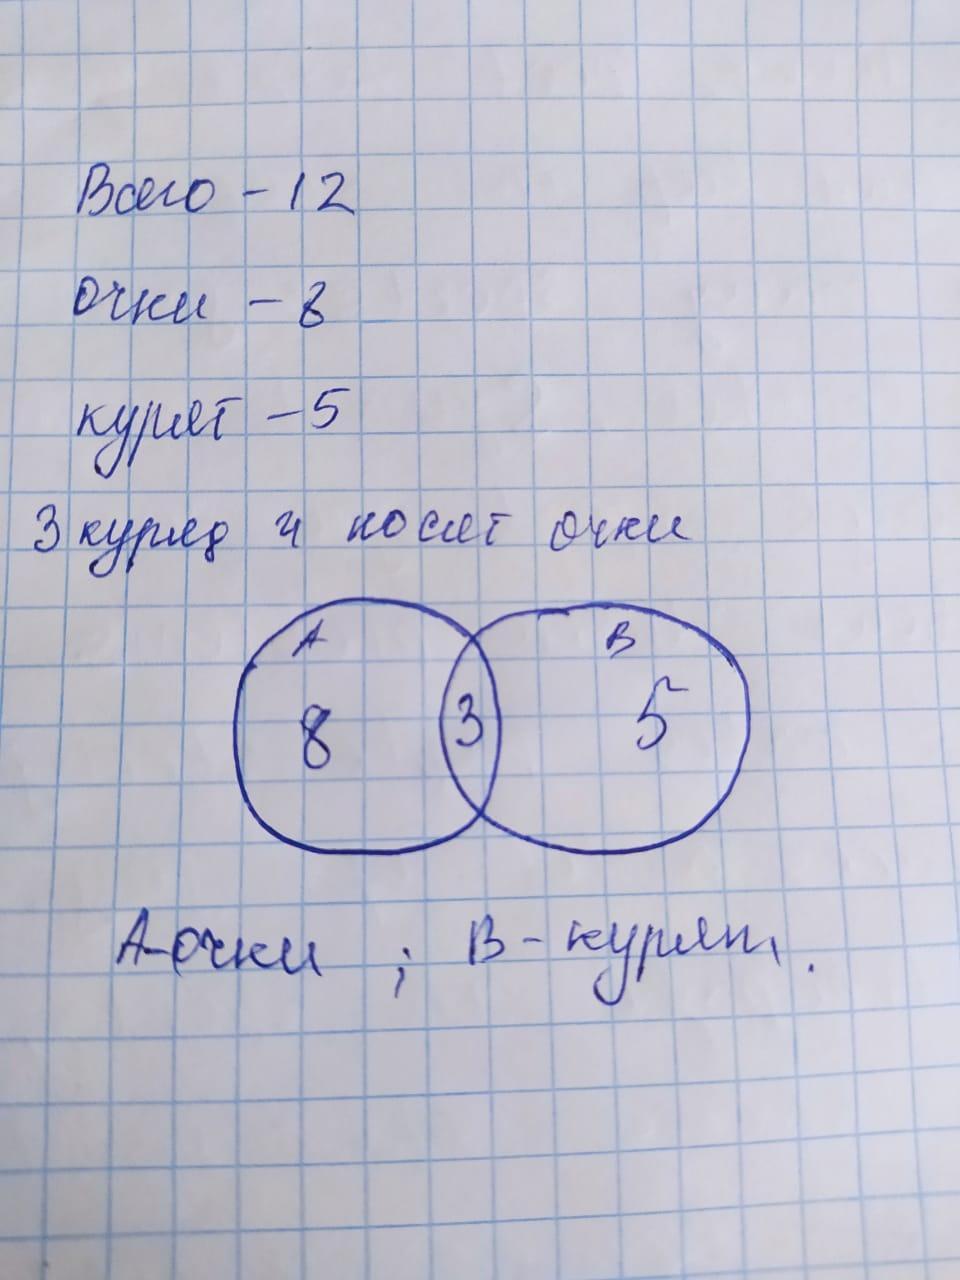 Всего - 12
очки - 8
курят - 5
3 куряд и носят очки
A B
8 3 5
А-очки ; В - курят.